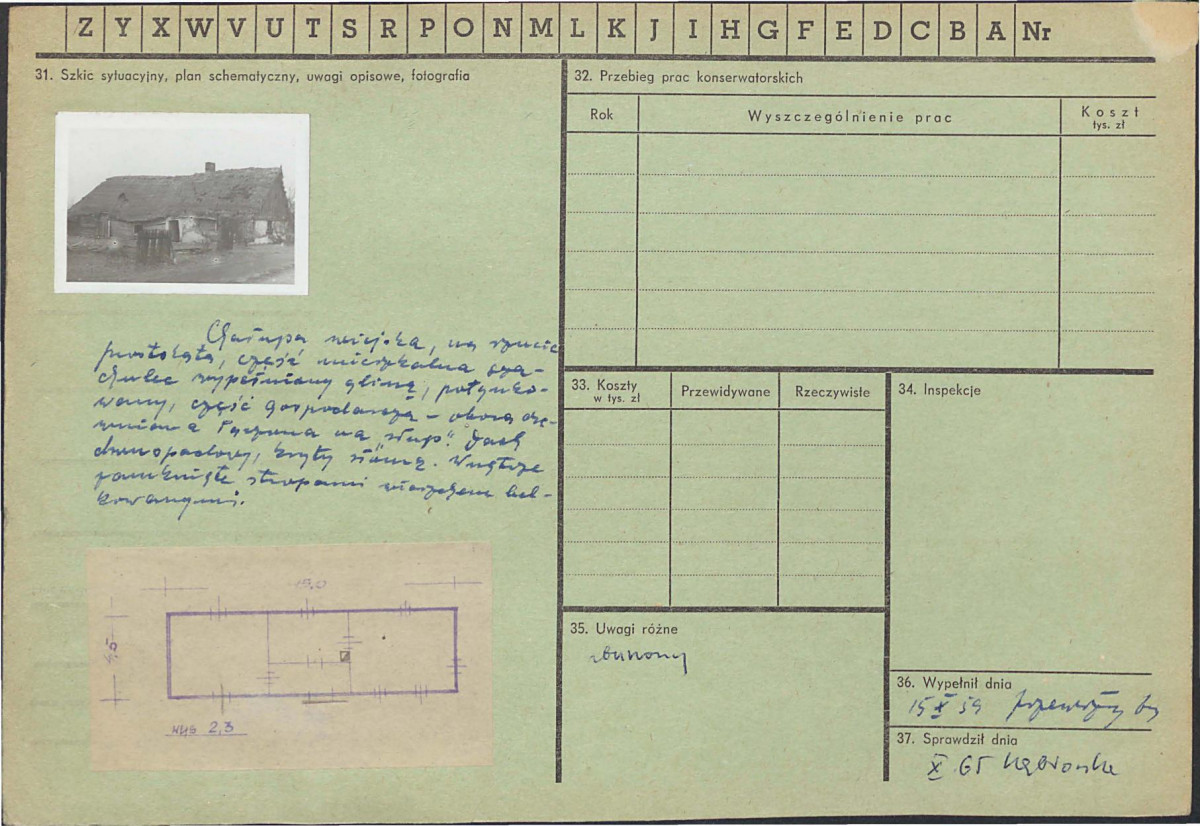 Z Y X W V U T S R P O N M L K J I H G F E D C B A Nr
31. Szkic sytuacyjny, plan schematyczny, uwagi opisowe, fotografia
Chałupa wiejska, na rzucie
prostokąta, część mieszkalna sza-
chulec wypełniony gliną, potynko-
wany, część gospodarcza – obora dre-
wniana łączona na „słup". Dach
dwuspadowy, kryty słomą. Wnętrze
zamknięte stropami bel-
kowanymi.
15,0
WYS 2,3
32. Przebieg prac konserwatorskich
Rok
Wyszczególnienie prac
Koszt
tys. zł
33. Koszty
w tys. zł
Przewidywane
Rzeczywiste
34. Inspekcje
35. Uwagi różne
zburzony
36. Wypełnił dnia
15 X 59
37. Sprawdził dnia
X 65